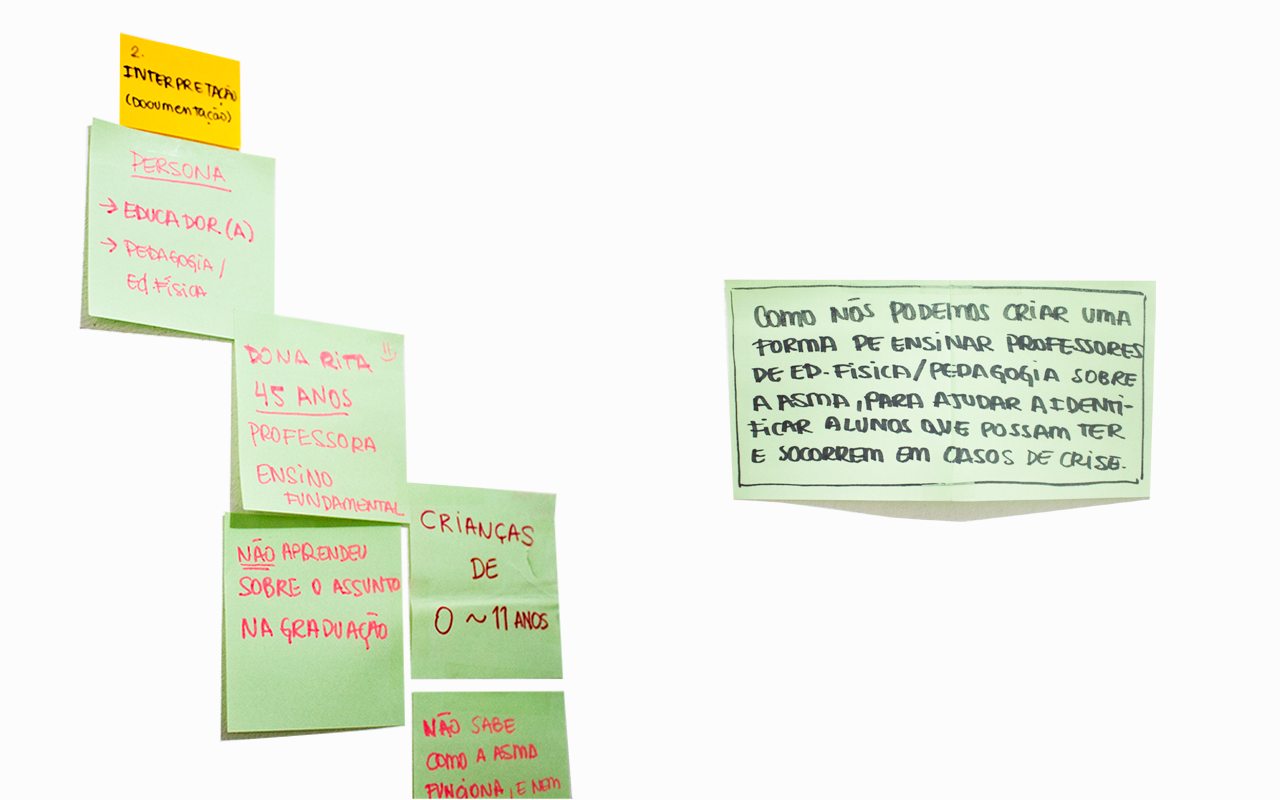 2.
INTERPRETAÇÃO
(DOCUMENTAÇÃO)
PERSONA
→ EDUCADOR(A)
→ PEDAGOGIA/
ED.FÍSICA
DONA RITA =)
45 ANOS
PROFESSORA
ENSINO
FUNDAMENTAL
NÃO APRENDEU
SOBRE O ASSUNTO
NA GRADUAÇÃO
CRIANÇAS
DE
0 ~ 11 ANOS
NÃO SABE
COMO A ASMA
FUNCIONA, E NEM
COMO NÓS PODEMOS CRIAR UMA
FORMA DE ENSINAR PROFESSORES
DE ED.FÍSICA/PEDAGOGIA SOBRE
A ASMA, PARA AJUDAR A IDENTI-
FICAR ALUNOS QUE POSSAM TER
E SOCORREM EM CASOS DE CRISE.